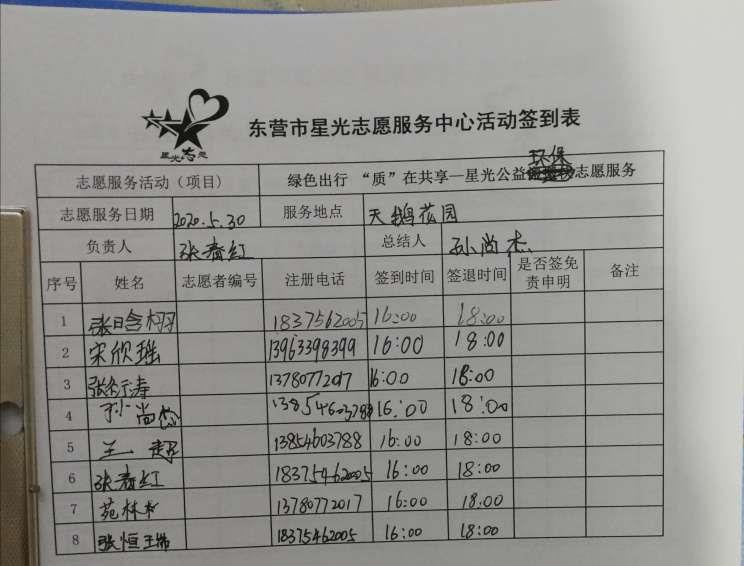 星光志愿
东营市星光志愿服务中心活动签到表
志愿服务活动（项目） 绿色出行 “质”在共享—星光公益环保志愿服务
志愿服务日期 2020.5.30 服务地点 天鹅花园
负责人 张春红 总结人 孙尚杰
序号 姓名 志愿者编号 注册电话 签到时间 签退时间 是否签免责申明 备注
1 张晗栩 18375462005 16:00 18:00
2 宋欣瑶 13963398399 16:00 18:00
3 13780772017 16:00 18:00
4 孙尚 13854603788 16:00 18:00
5 王超 13854603788 16:00 18:00
6 张春红 18375462005 16:00 18:00
7 苑林 13780772017 16:00 18.00
8 张恒瑞 18375462005 16:00 18:00